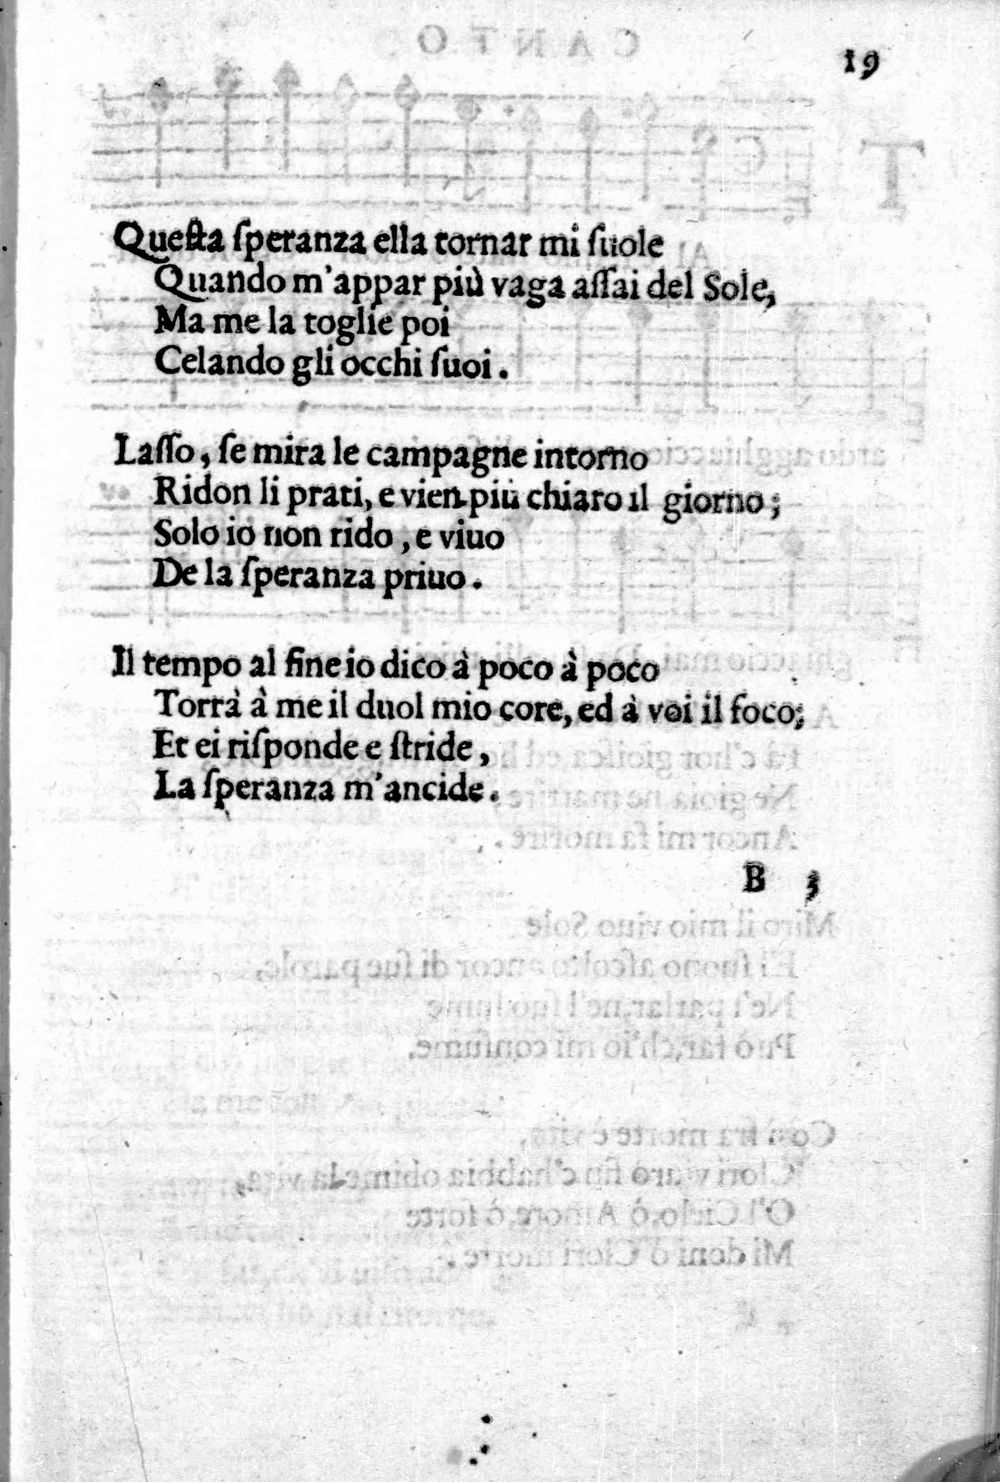 19
Queſta ſperanza ella tornar mi ſuole
Quando m'appar più vaga aſſai del Sole,
Ma me la toglie poi
Celando gli occhi ſuoi.
Laſſo, ſe mira le campagne intorno
Ridon li prati, e vien più chiaro il giorno;
Solo io non rido, e viuo
De la ſperanza priuo.
Il tempo al fine io dico à poco à poco
Torrà à me il duol mio core, ed à voi il foco;
Et ei riſponde e ſtride,
La ſperanza m'ancide.
B 3